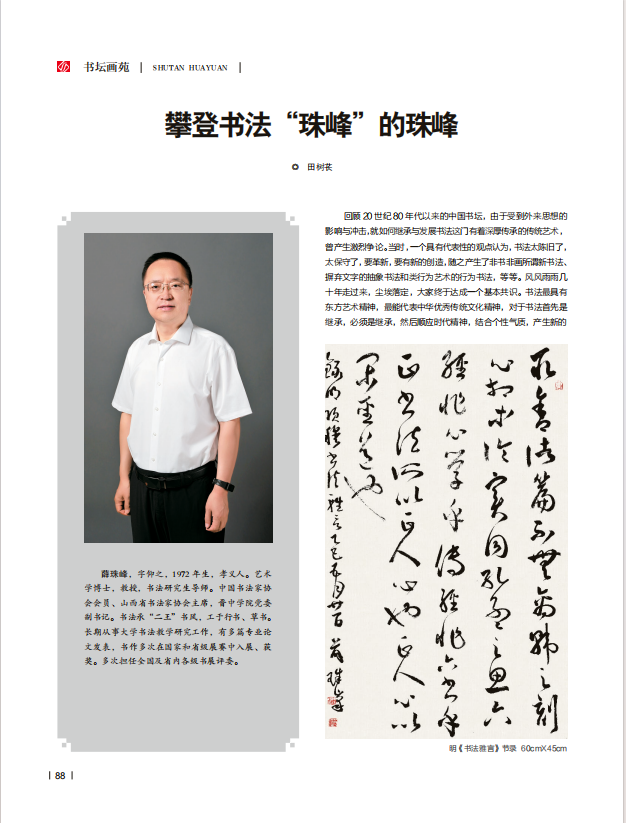 书坛画苑 | SHUTAN HUAYUAN |
攀登书法“珠峰”的珠峰
田树苌
薛珠峰，字仰之，1972年生，孝义人。艺术
学博士，教授，书法研究生导师。中国书法家协
会会员、山西省书法家协会主席，晋中学院党委
副书记。书法承“二王”书风，工于行书、草书。
长期从事大学书法教学研究工作，有多篇专业论
文发表，书作多次在国家和省级展赛中入展、获
奖。多次担任全国及省内各级书展评委。
回顾20世纪80年代以来的中国书坛，由于受到外来思想的
影响与冲击，就如何继承与发展书法这门有着深厚传承的传统艺术，
曾产生激烈争论。当时，一个具有代表性的观点认为，书法太陈旧了，
太保守了，要革新，要有新的创造，随之产生了非书非画所谓新书法、
摒弃文字的抽象书法和类行为艺术的行为书法，等等。风风雨雨几
十年走过来，尘埃落定，大家终于达成一个基本共识。书法最具有
东方艺术精神，最能代表中华优秀传统文化精神，对于书法首先是
继承，必须是继承，然后顺应时代精神，结合个性气质，产生新的
取舍諸篇不無商韩之刻
心相等論實同孔孟之思六
經非心學乎傳經非六書乎
正書法所以正人心也正人心所以
闲聖道也
錄明項穆書法雅言乙巳五月廿 薛珠峰
明《书法雅言》节录 60cmX45cm
| 88 |